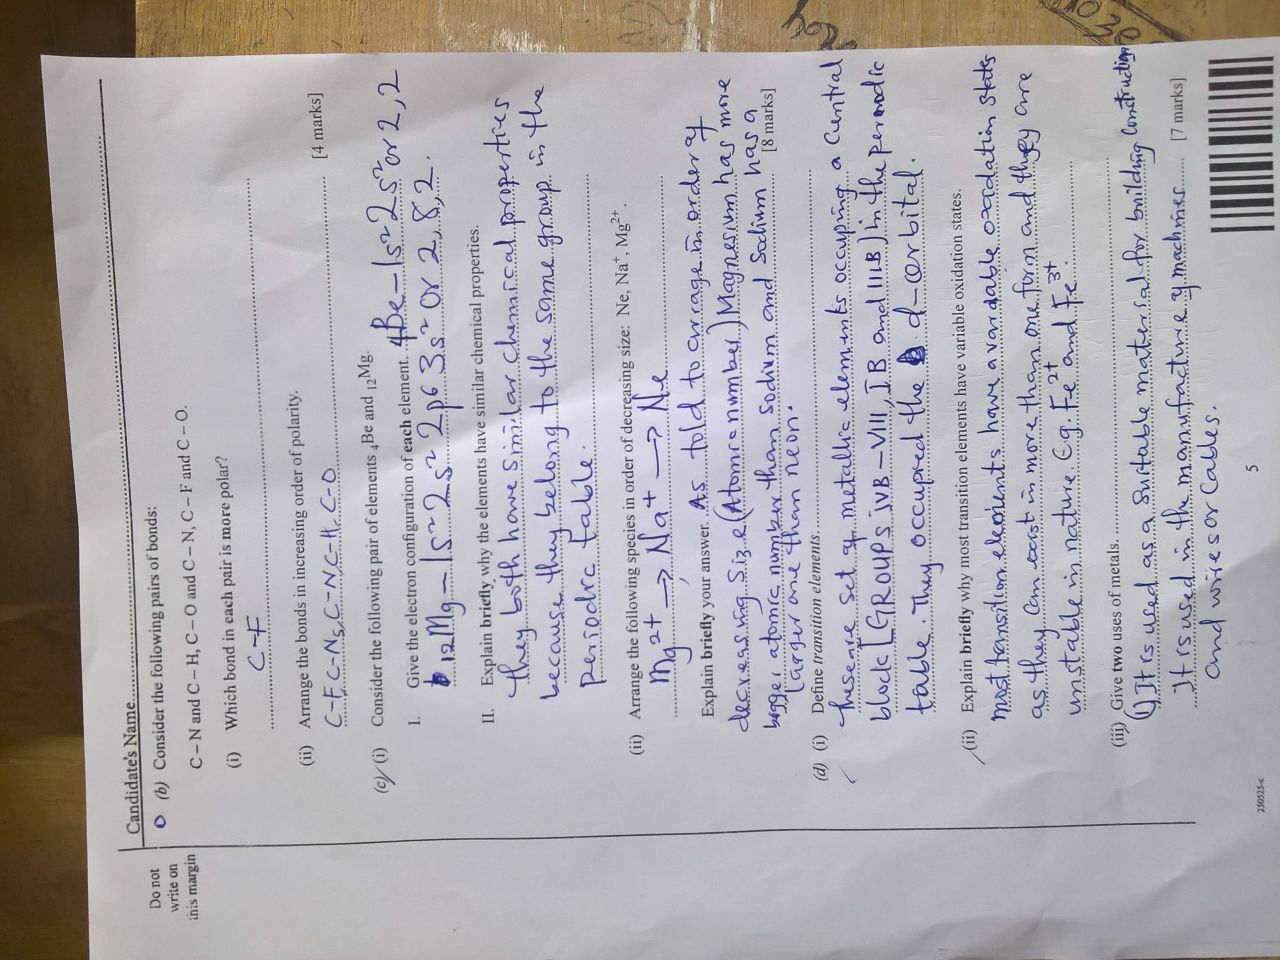 Candidate's Name
Do not
write on
this margin
(b) Consider the following pairs of bonds:
C – N and C – H, C – O and C – N, C – F and C – O.
(i) Which bond in each pair is more polar?
C-F
(ii) Arrange the bonds in increasing order of polarity.
C-F, C-N, C-N C-H, C-O
[4 marks]
(c) (i) Consider the following pair of elements ₄Be and ₁₂Mg.
I. Give the electron configuration of each element. ₄Be – 1s² 2s² or 2,2
₁₂Mg – 1s² 2s² 2p6 3s² or 2,8,2.
II. Explain briefly why the elements have similar chemical properties.
they both have similar chemical properties
because they belong to the same group in the
periodic table.
(ii) Arrange the following species in order of decreasing size: Ne, Na⁺, Mg²⁺.
Mg²⁺ → Na⁺ → Ne
Explain briefly your answer. As told to arrage in order of
decreasing size (Atomic number) Magnesium has more
bigger atomic number than sodium and Sodium has a
larger one than neon.
[8 marks]
(d) (i) Define transition elements.
these are set of metallic elements occupying a central
block [GROUPS IVB – VIII, IB and IIIB) in the periodic
table. They occupied the d-orbital.
(ii) Explain briefly why most transition elements have variable oxidation states.
most transition elements have variable oxidation states
as they can exist in more than one form and they are
unstable in nature E.g. Fe²⁺ and Fe³⁺.
(iii) Give two uses of metals.
(1) It is used as a suitable material for building Construction
It is used in the manufacture y machines
and wires or Cables.
[7 marks]
250525-c
5